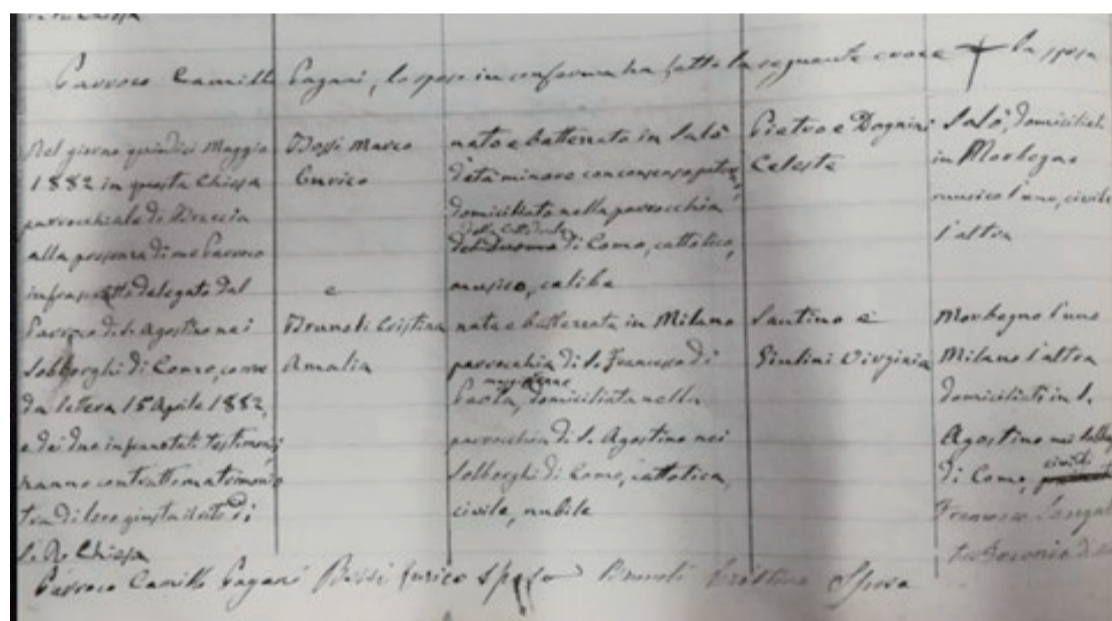 Parroco Camillo Pagani, lo sposo in conferma ha fatto la seguente croce + La sposa
Nel giorno quindici Maggio
1882 in questa Chiesa
parrocchiale di
alla presenza di me Parroco
infrascritto delegato dal
Parroco di S. Agostino nei
Sobborghi di Como, come
da lettera 15 Aprile 1882,
e dei due infranotati testimoni
hanno contratto matrimonio
tra di loro giusta il rito di
S. R. Chiesa
Bossi Marco
Enrico
e
Brunoli Cristina
Amalia
nato e battezzato in Salò
d'età minore con consenso paterno,
domiciliato nella parrocchia
della Cattedrale
di Como, cattolico,
musico, celibe
nata e battezzata in Milano
parrocchia di S. Francesco di
maggiorenne
Paola, domiciliata nella
parrocchia di S. Agostino nei
Sobborghi di Como, cattolica,
civile, nubile
Pietro e Dognini
Celeste
Santino e
Giulini Virginia
Salò, domiciliati
in Morbegno
musico l'uno, civile
l'altra
Morbegno l'uno
Milano l'altra
domiciliati in S.
Agostino nei
civili
di Como,
Francesco
Parroco Camillo Pagani Bossi Enrico Sposo Brunoli Cristina Sposa